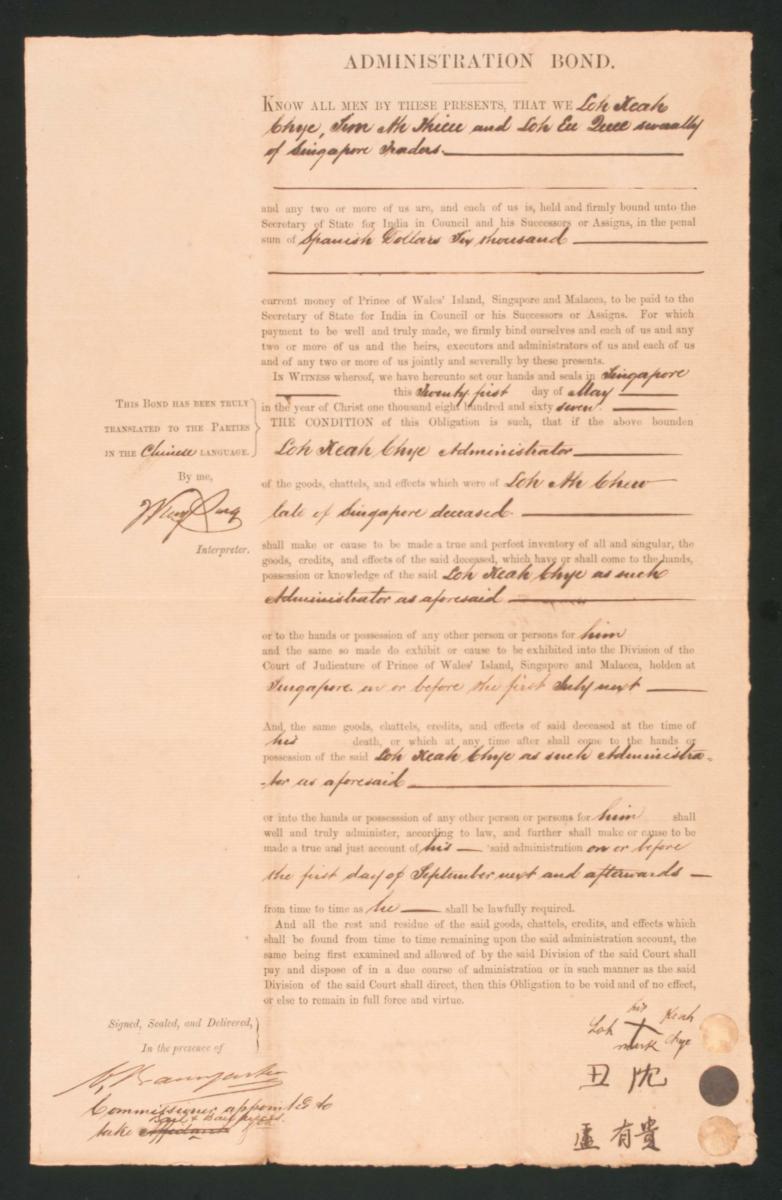 ADMINISTRATION BOND.
KNOW ALL MEN BY THESE PRESENTS, THAT WE Loh Keah
Chye, Sim Ah Khieu and Loh Eu Quee severally
of Singapore Traders
and any two or more of us are, and each of us is, held and firmly bound unto the
Secretary of State for India in Council and his Successors or Assigns, in the penal
sum of Spanish Dollars Six thousand
current money of Prince of Wales' Island, Singapore and Malacca, to be paid to the
Secretary of State for India in Council or his Successors or Assigns. For which
payment to be well and truly made, we firmly bind ourselves and each of us and any
two or more of us and the heirs, executors and administrators of us and each of us
and of any two or more of us jointly and severally by these presents.
IN WITNESS whereof, we have hereunto set our hands and seals in Singapore
this Twenty first day of May
in the year of Christ one thousand eight hundred and sixty seven.
THIS BOND HAS BEEN TRULY
TRANSLATED TO THE PARTIES
IN THE Chinese LANGUAGE.
By me,
Interpreter.
THE CONDITION of this Obligation is such, that if the above bounden
Loh Keah Chye Administrator
of the goods, chattels, and effects which were of Loh Ah Chew
late of Singapore deceased
shall make or cause to be made a true and perfect inventory of all and singular, the
goods, credits, and effects of the said deceased, which have or shall come to the hands,
possession or knowledge of the said Loh Keah Chye as such
Administrator as aforesaid
or to the hands or possession of any other person or persons for him
and the same so made do exhibit or cause to be exhibited into the Division of the
Court of Judicature of Prince of Wales' Island, Singapore and Malacca, holden at
Singapore on or before the first July next
And the same goods, chattels, credits, and effects of said deceased at the time of
his death, or which at any time after shall come to the hands or
possession of the said Loh Keah Chye as such Administra-
-tor as aforesaid
or into the hands or possesssion of any other person or persons for him shall
well and truly administer, according to law, and further shall make or cause to be
made a true and just account of his said administration on or before
the first day of September next and afterwards
from time to time as he shall be lawfully required.
And all the rest and residue of the said goods, chattels, credits, and effects which
shall be found from time to time remaining upon the said administration account, the
same being first examined and allowed of by the said Division of the said Court shall
pay and dispose of in a due course of administration or in such manner as the said
Division of the said Court shall direct, then this Obligation to be void and of no effect,
or else to remain in full force and virtue.
Signed, Sealed, and Delivered,
In the presence of
Commissioner appointed to
take Bail
his
Loh X Keah
mark Chye
丑 沈
盧 有 貴